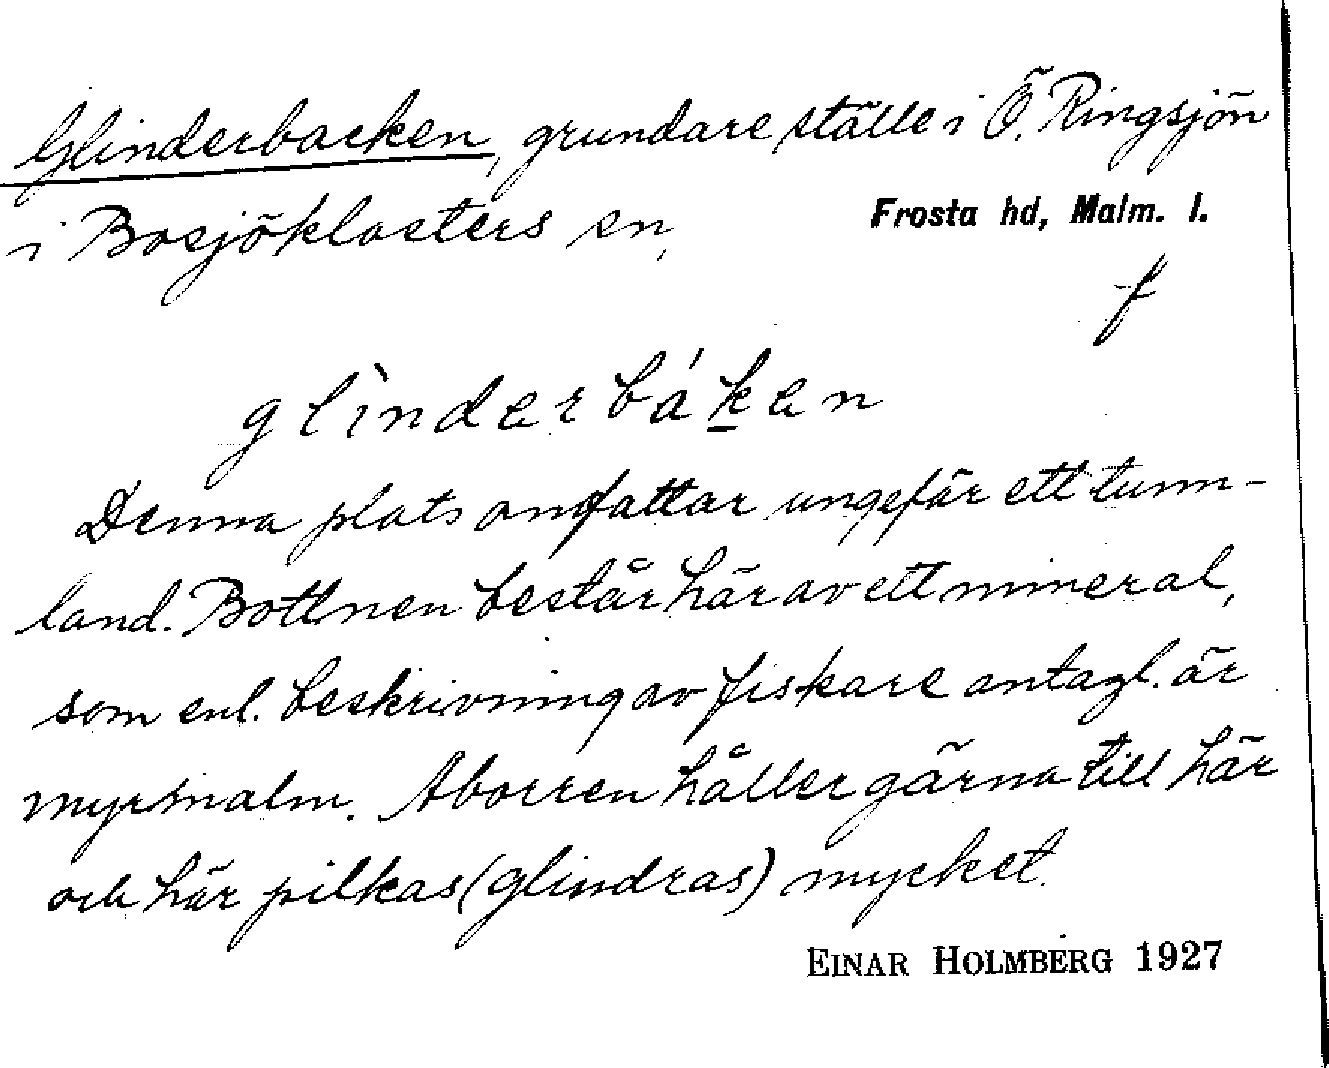 Glinderbacken, grundare ställe i Ö. Ringsjön
i Bosjöklosters sn, Frosta hd, Malm. l.
f
glìnderbáken
Denna plats omfattar ungefär ett tunn-
land. Bottnen består här av ett mineral,
som enl. beskrivning av fiskare antagl. är
myrmalm. Aborren håller gärna till här
och här pilkas (glindras) mycket.
EINAR HOLMBERG 1927